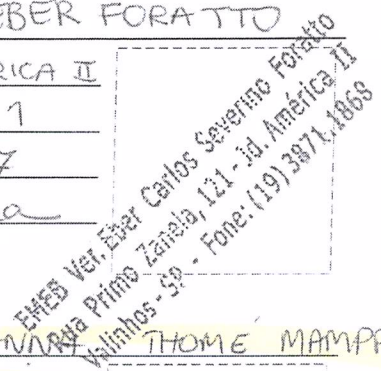 EBER FORATTO
RICA II
1
7
a
EMEB Ver. Eber Carlos Severino Foratto
Rua Primo Zanela, 121 - Jd. América II
Valinhos - SP - Fone: (19) 3871.1868
THOME MAMPR